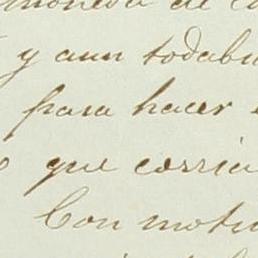 moneda de
y aun todabi
para hacer
que corria
Con motiv